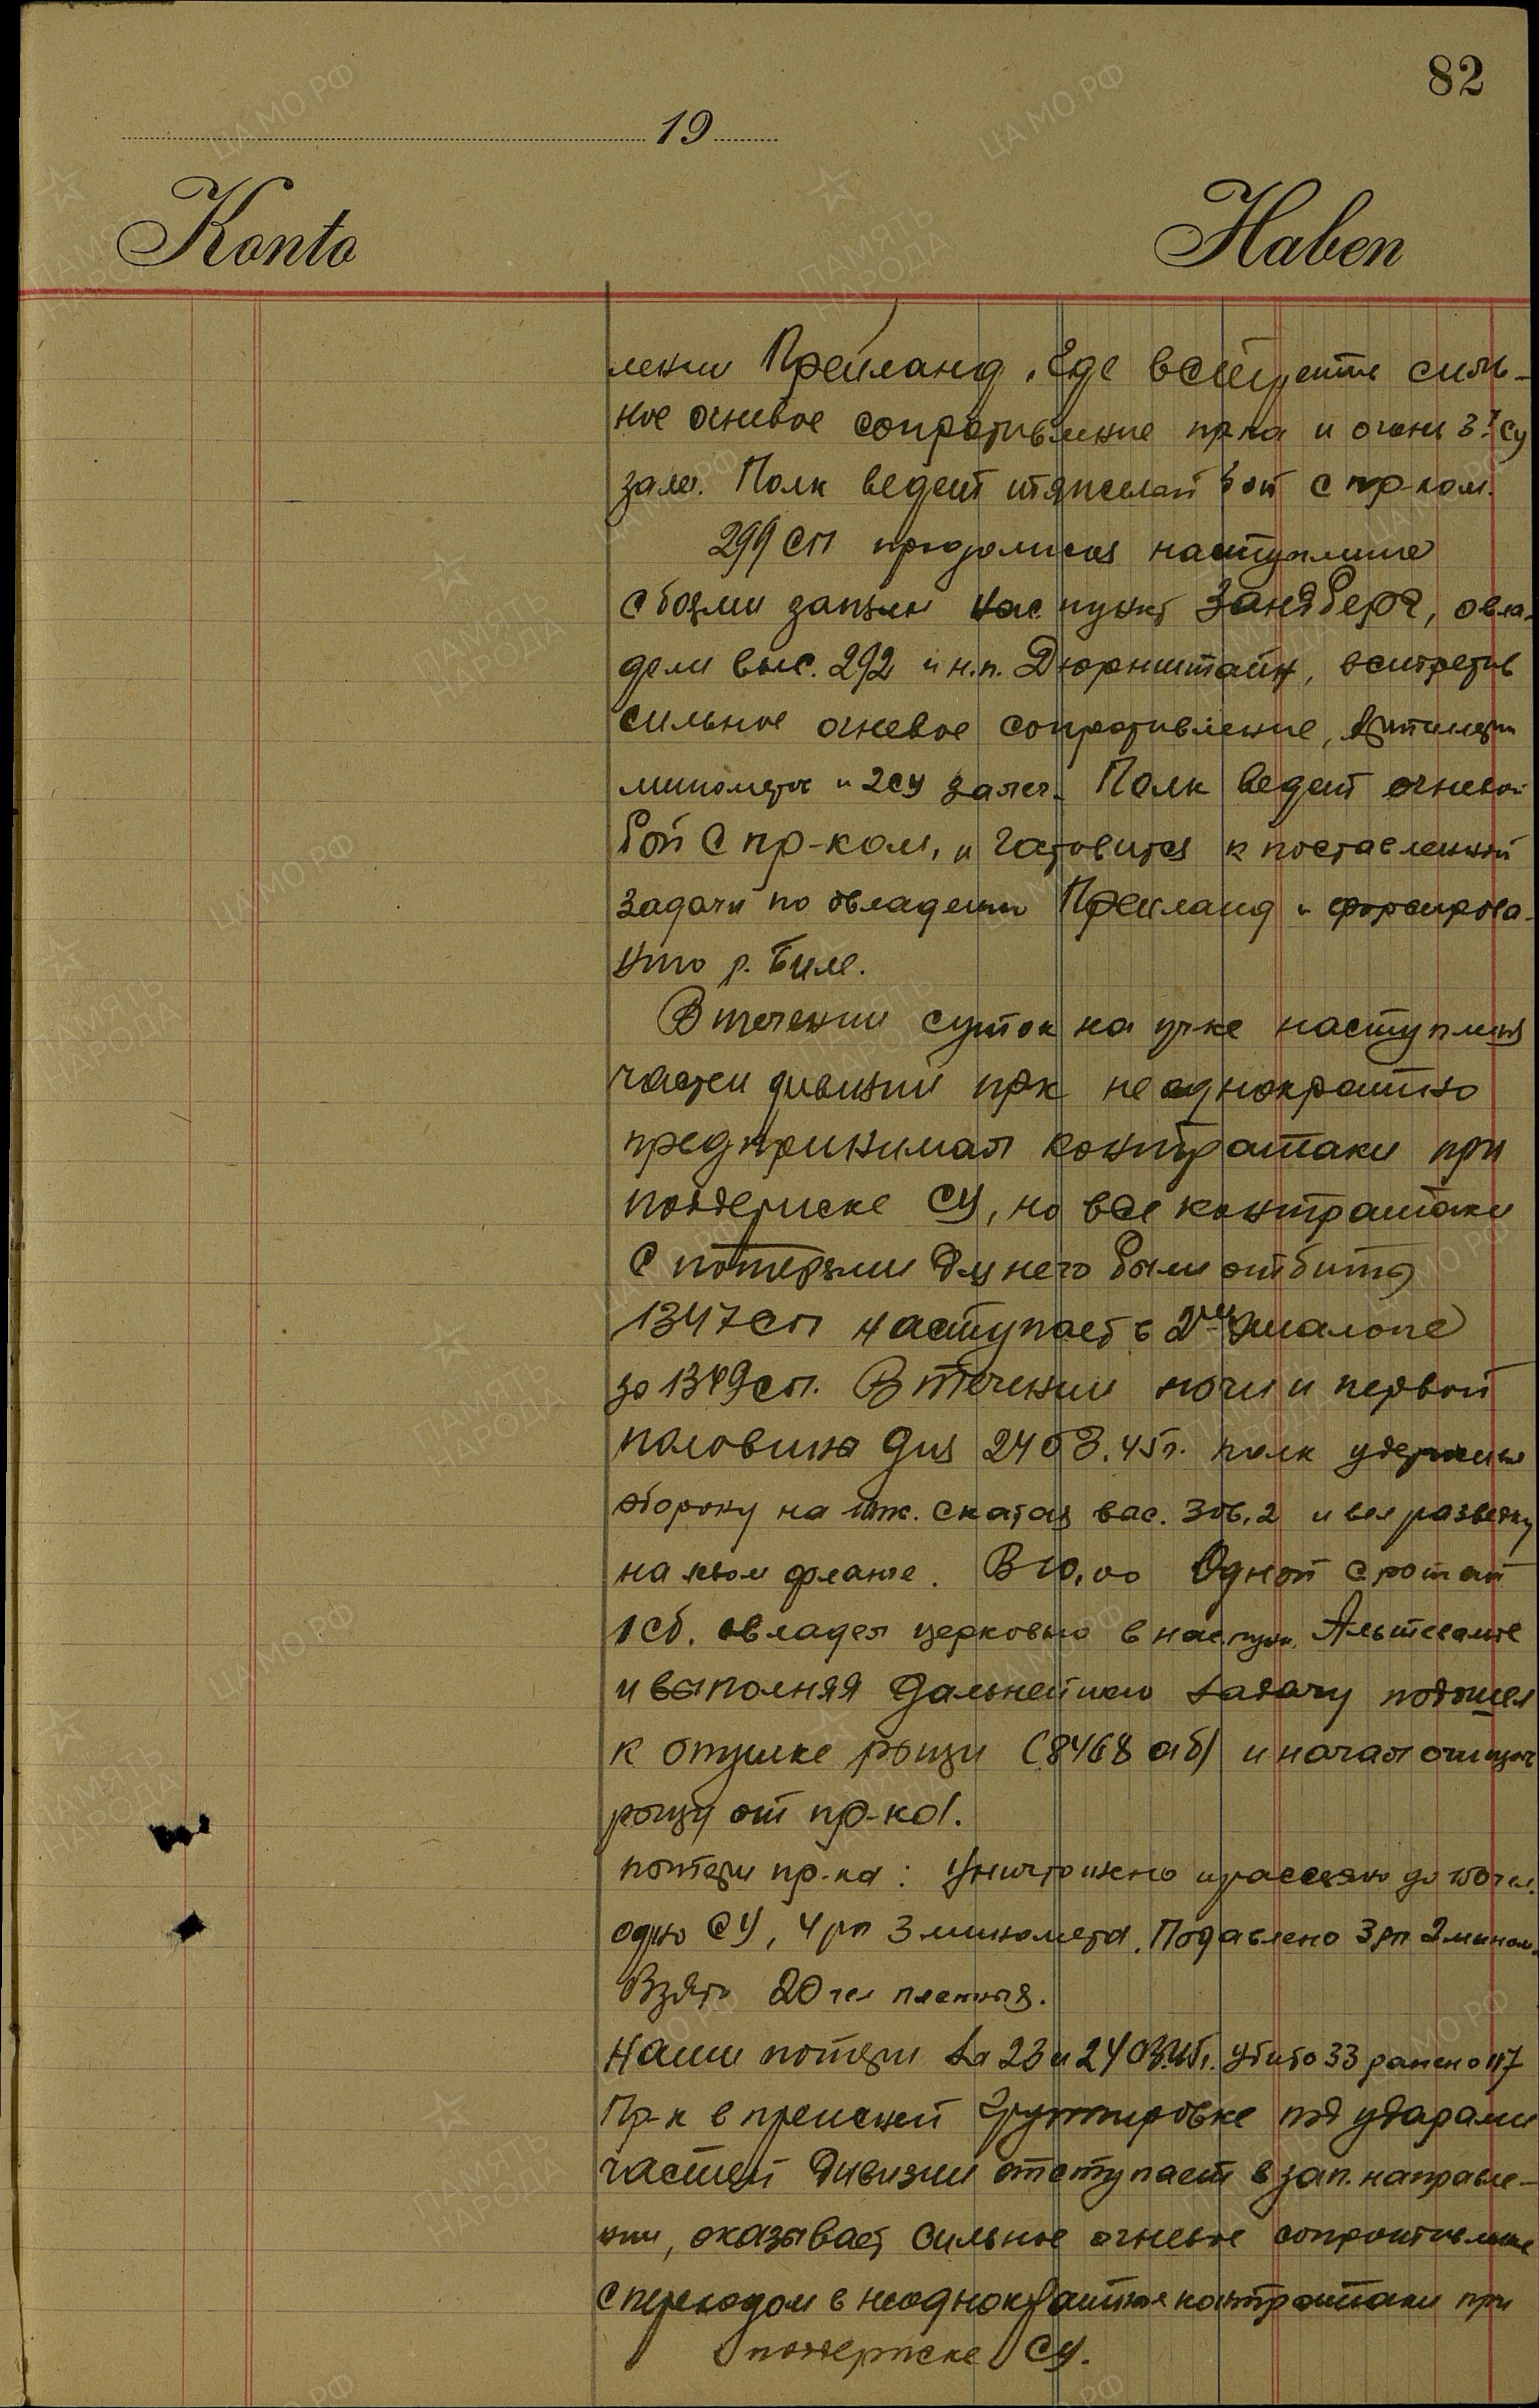 82
19
Konto Haben
лении Прейланд, где встретив силь-
ное огневое сопротивление пр-ка и огонь 3х СУ
залег. Полк ведет тяжелый бой с пр-ком.
299 СП продолжая наступление
с боями заняли нас. пункт Зандберг, овла-
дели выс. 292 и н.п. Дюрнштайн, встретив
сильное огневое сопротивление, артилерии
минометов и 2 СУ залег. Полк ведет огневой
бой с пр-ком, и готовится к поставленной
задачи по овладению Прейланд и форсирова-
нию р. Биле.
В течении суток на уч-ке наступления
частей дивизии пр-к неоднократно
предпринимал контратаки при
поддержке СУ, но все контратаки
с потерями для него были отбиты
1347 СП наступает в 2ом эшалоне
за 1349 сп. В течении ночи и первой
половины дня 24 03.45 г. полк удержив
оборону на юж. скатах выс. 306,2 и вел разведку
на левом фланге. В 10.00 Одной с ротой
1 СБ. овладел церковью в нас. пунк. Альтевальде
и выполняя дальнейшию задачу подошел
к опушке рощи (8468 аб) и начал очищать
рощу от пр-ка.
потери пр-ка: Уничтожено и рассеяно до 150 чел.
одно СУ, 4 рп 3 миномета. Подавлено 3 рп 2 мином.
Взято 20 чел пленных.
Наши потери за 23 и 24 03.45 г. убито 33 ранено 117
Пр-к в прежней групировке под ударами
частей дивизии отступает в зап. направле-
нии, оказывает сильное огневое сопротивление
с переходом в неоднократные контратаки при
поддержке СУ.